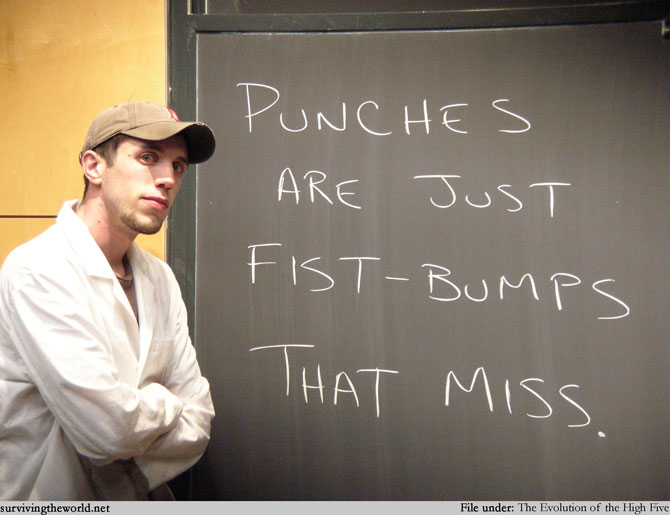 PUNCHES
ARE JUST
FIST-BUMPS
THAT MISS.
survivingtheworld.net
File under: The Evolution of the High Five